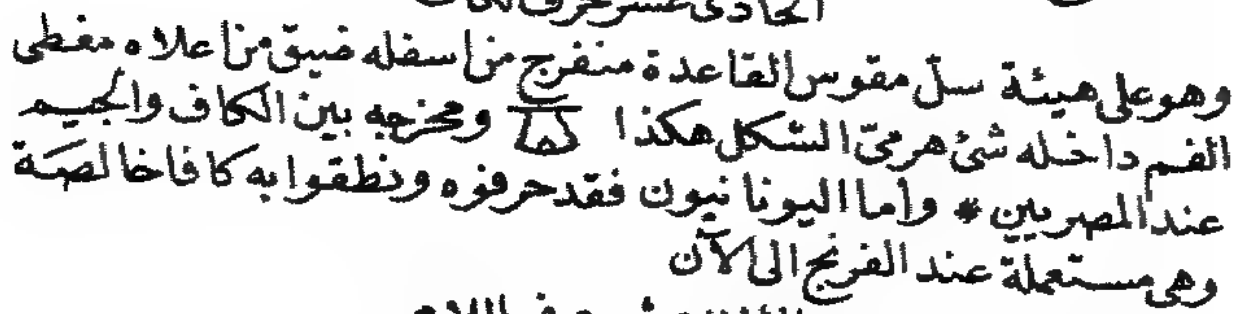 الحادى عشر حرف الكاف
وهو على هيئة سل مقوس القاعدة منفرج من اسفله ضيق من اعلاه مغطى
الفم داخله شئ هرمىّ الشكل هكذا ومخرجه بين الكاف والجيم
عند المصريين * وأما اليونانيون فقد حرفوه ونطقوا به كافا خالصة
وهى مستعملة عند الفرنج الى الآن